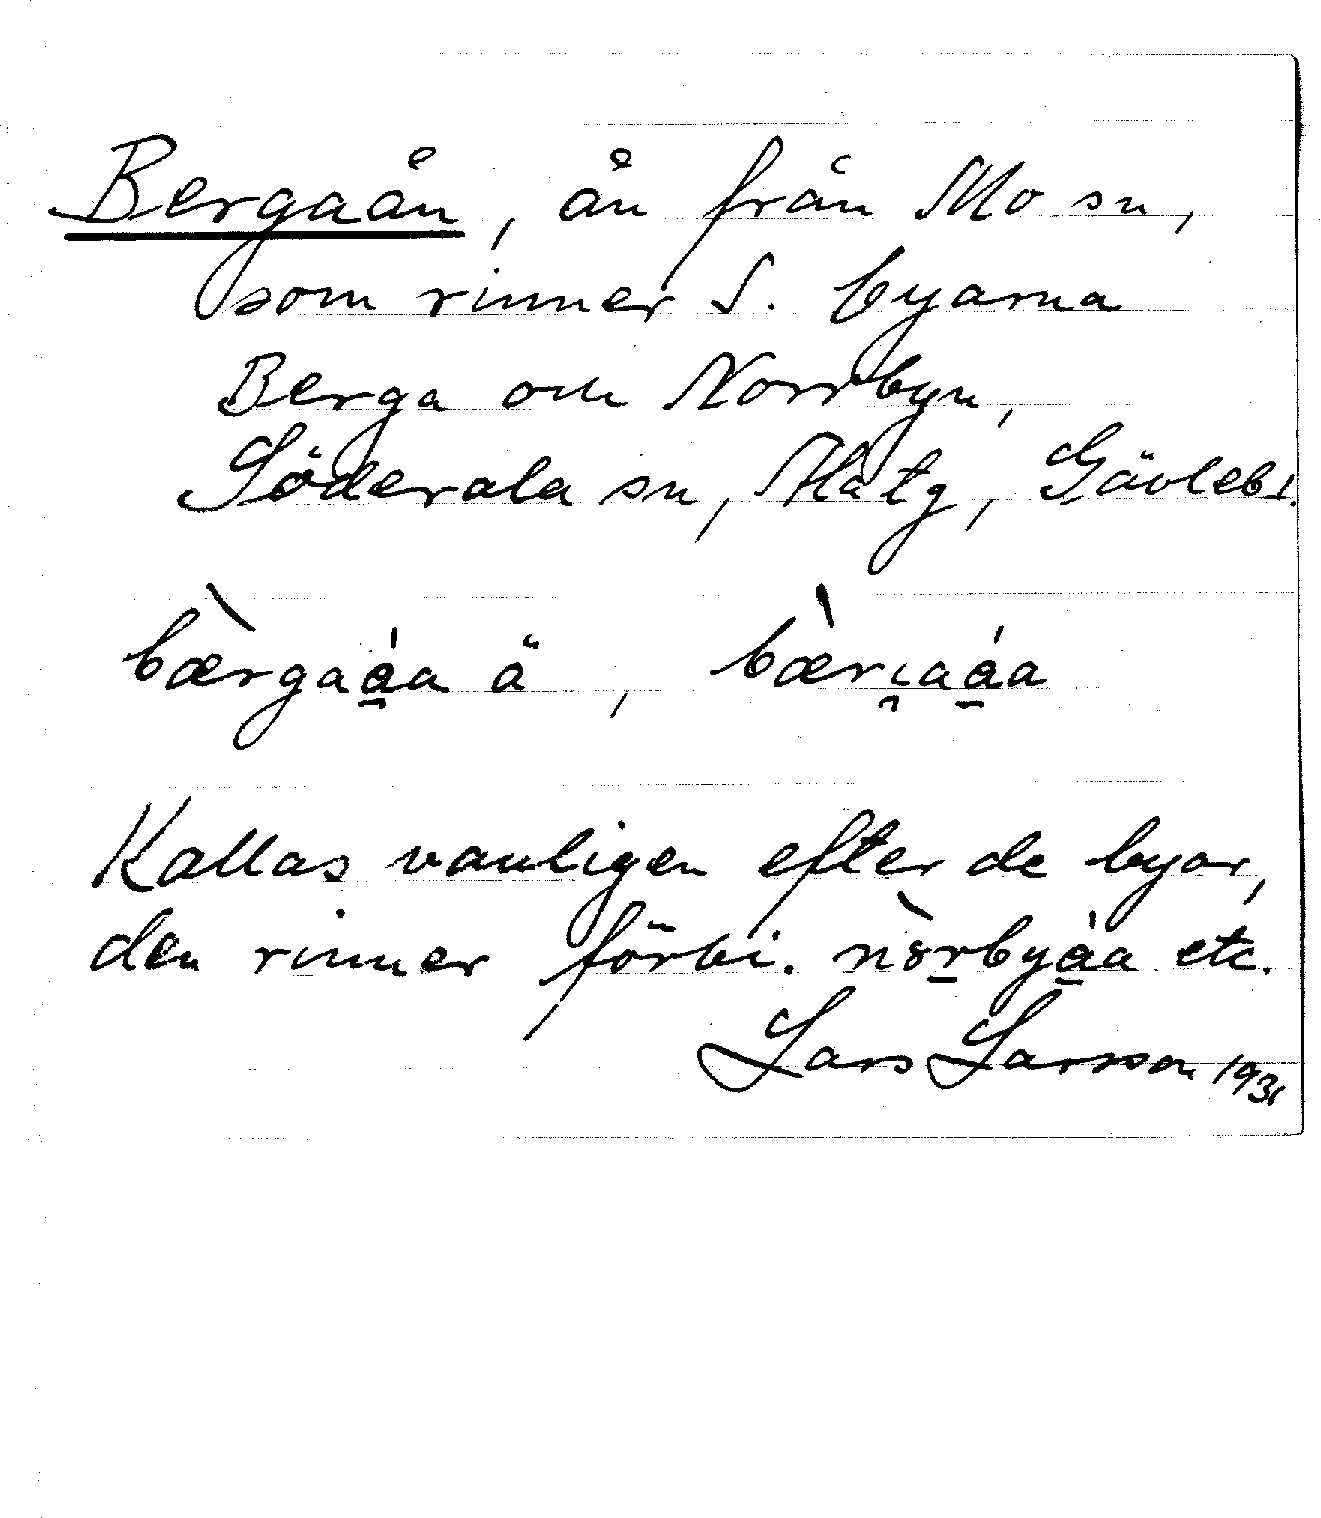 Bergaån, ån från Mo sn,
som rinner S. byarna
Berga och Norrbyn,
Söderala sn, Hätg, Gävleb l.
bærgaáa ä, bærıaáa
Kallas vanligen efter de byar,
den rinner förbi. nòrbyáa etc.
Lars Larsson 1931